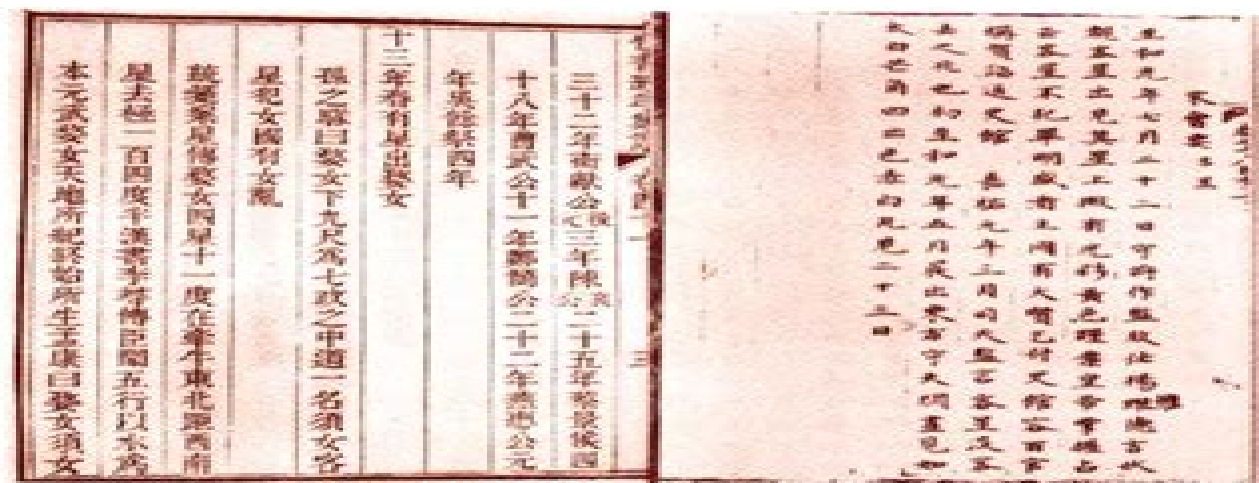 至和元年七月二十二日守將作監致仕楊惟德言伏
覩客星出見其星上微有光彩黃色謹案皇帝掌握占
云客星不犯畢明盛者主國有大賢乞付史館容百官
稱賀詔送史館 嘉祐元年三月司天監言客星沒客
去之兆也初至和元年五月晨出東方守天關晝見如
太白芒角四出色赤白凡見二十三日
三十二年衛獻公後元三年陳哀公二十五年蔡景侯四
十八年曹武公十一年鄭簡公二十二年燕懿公元
年吳餘祭四年
十二年春有星出婺女
孫之騄曰婺女下九尺為七政之中道一名須女客
星犯女國有女喪
案星傳婺女四星十一度在牽牛東北距西南
星去極一百四度半漢書李尋傳臣聞五行以水為
本元武婺女天地所紀終始所生孟康曰婺女須女